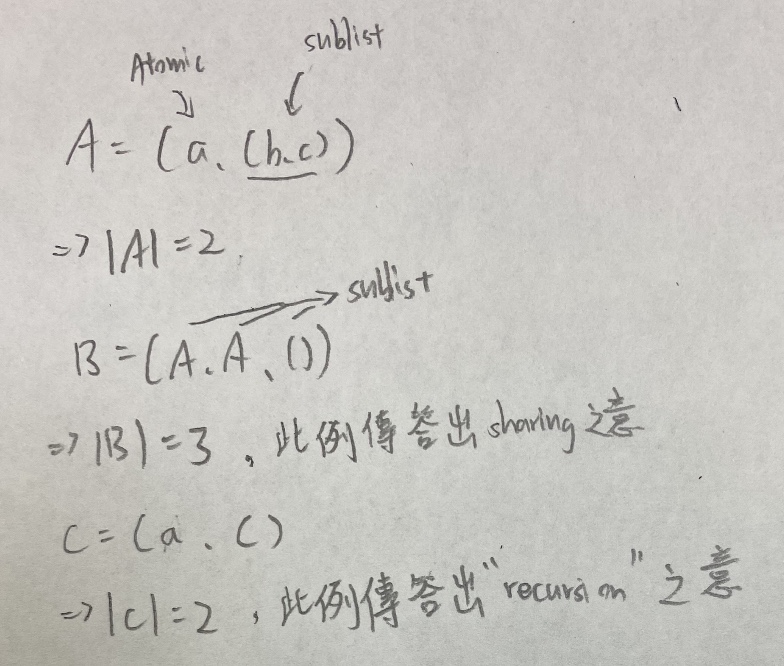 Atomic sublist
A = (a、(b、c))
=> |A| = 2.
sublist
B = (A、A、())
=> |B| = 3，此例傳答出 sharing 之意
C = (a、C)
=> |C| = 2，此例傳答出“recursion”之意